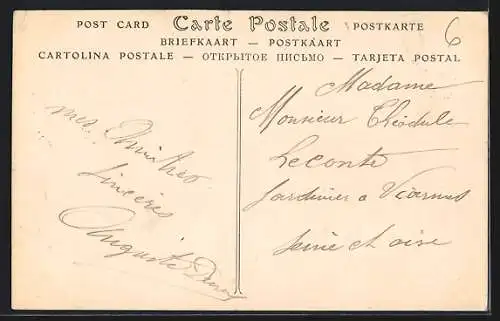 POST CARD Carte Postale POSTKARTE
BRIEFKAART — POSTKÁART
CARTOLINA POSTALE — ОТКРЫТОЕ ПИСЬМО — TARJETA POSTAL
6
mes Amitiés
Sincères
Auguste
Madame
Monsieur Théodule
Leconte
Jardinier a Viarmes
Seine et oise